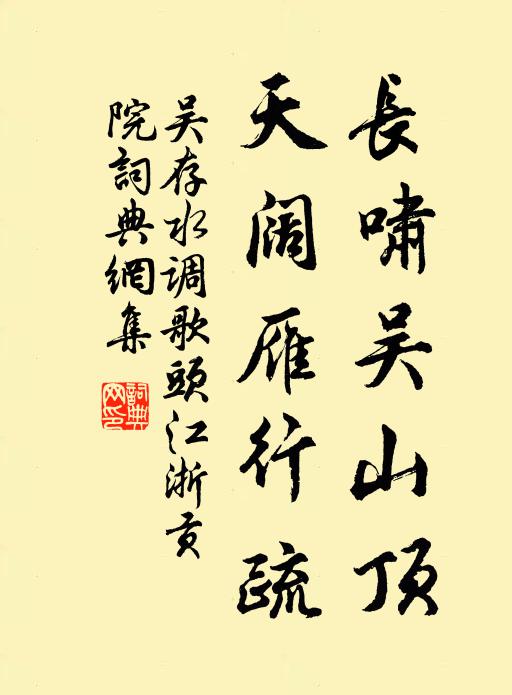 長嘯吴山頂
天阔雁行疏
吴存水调歌頭江浙贡
院詞典網集
詞典
网印